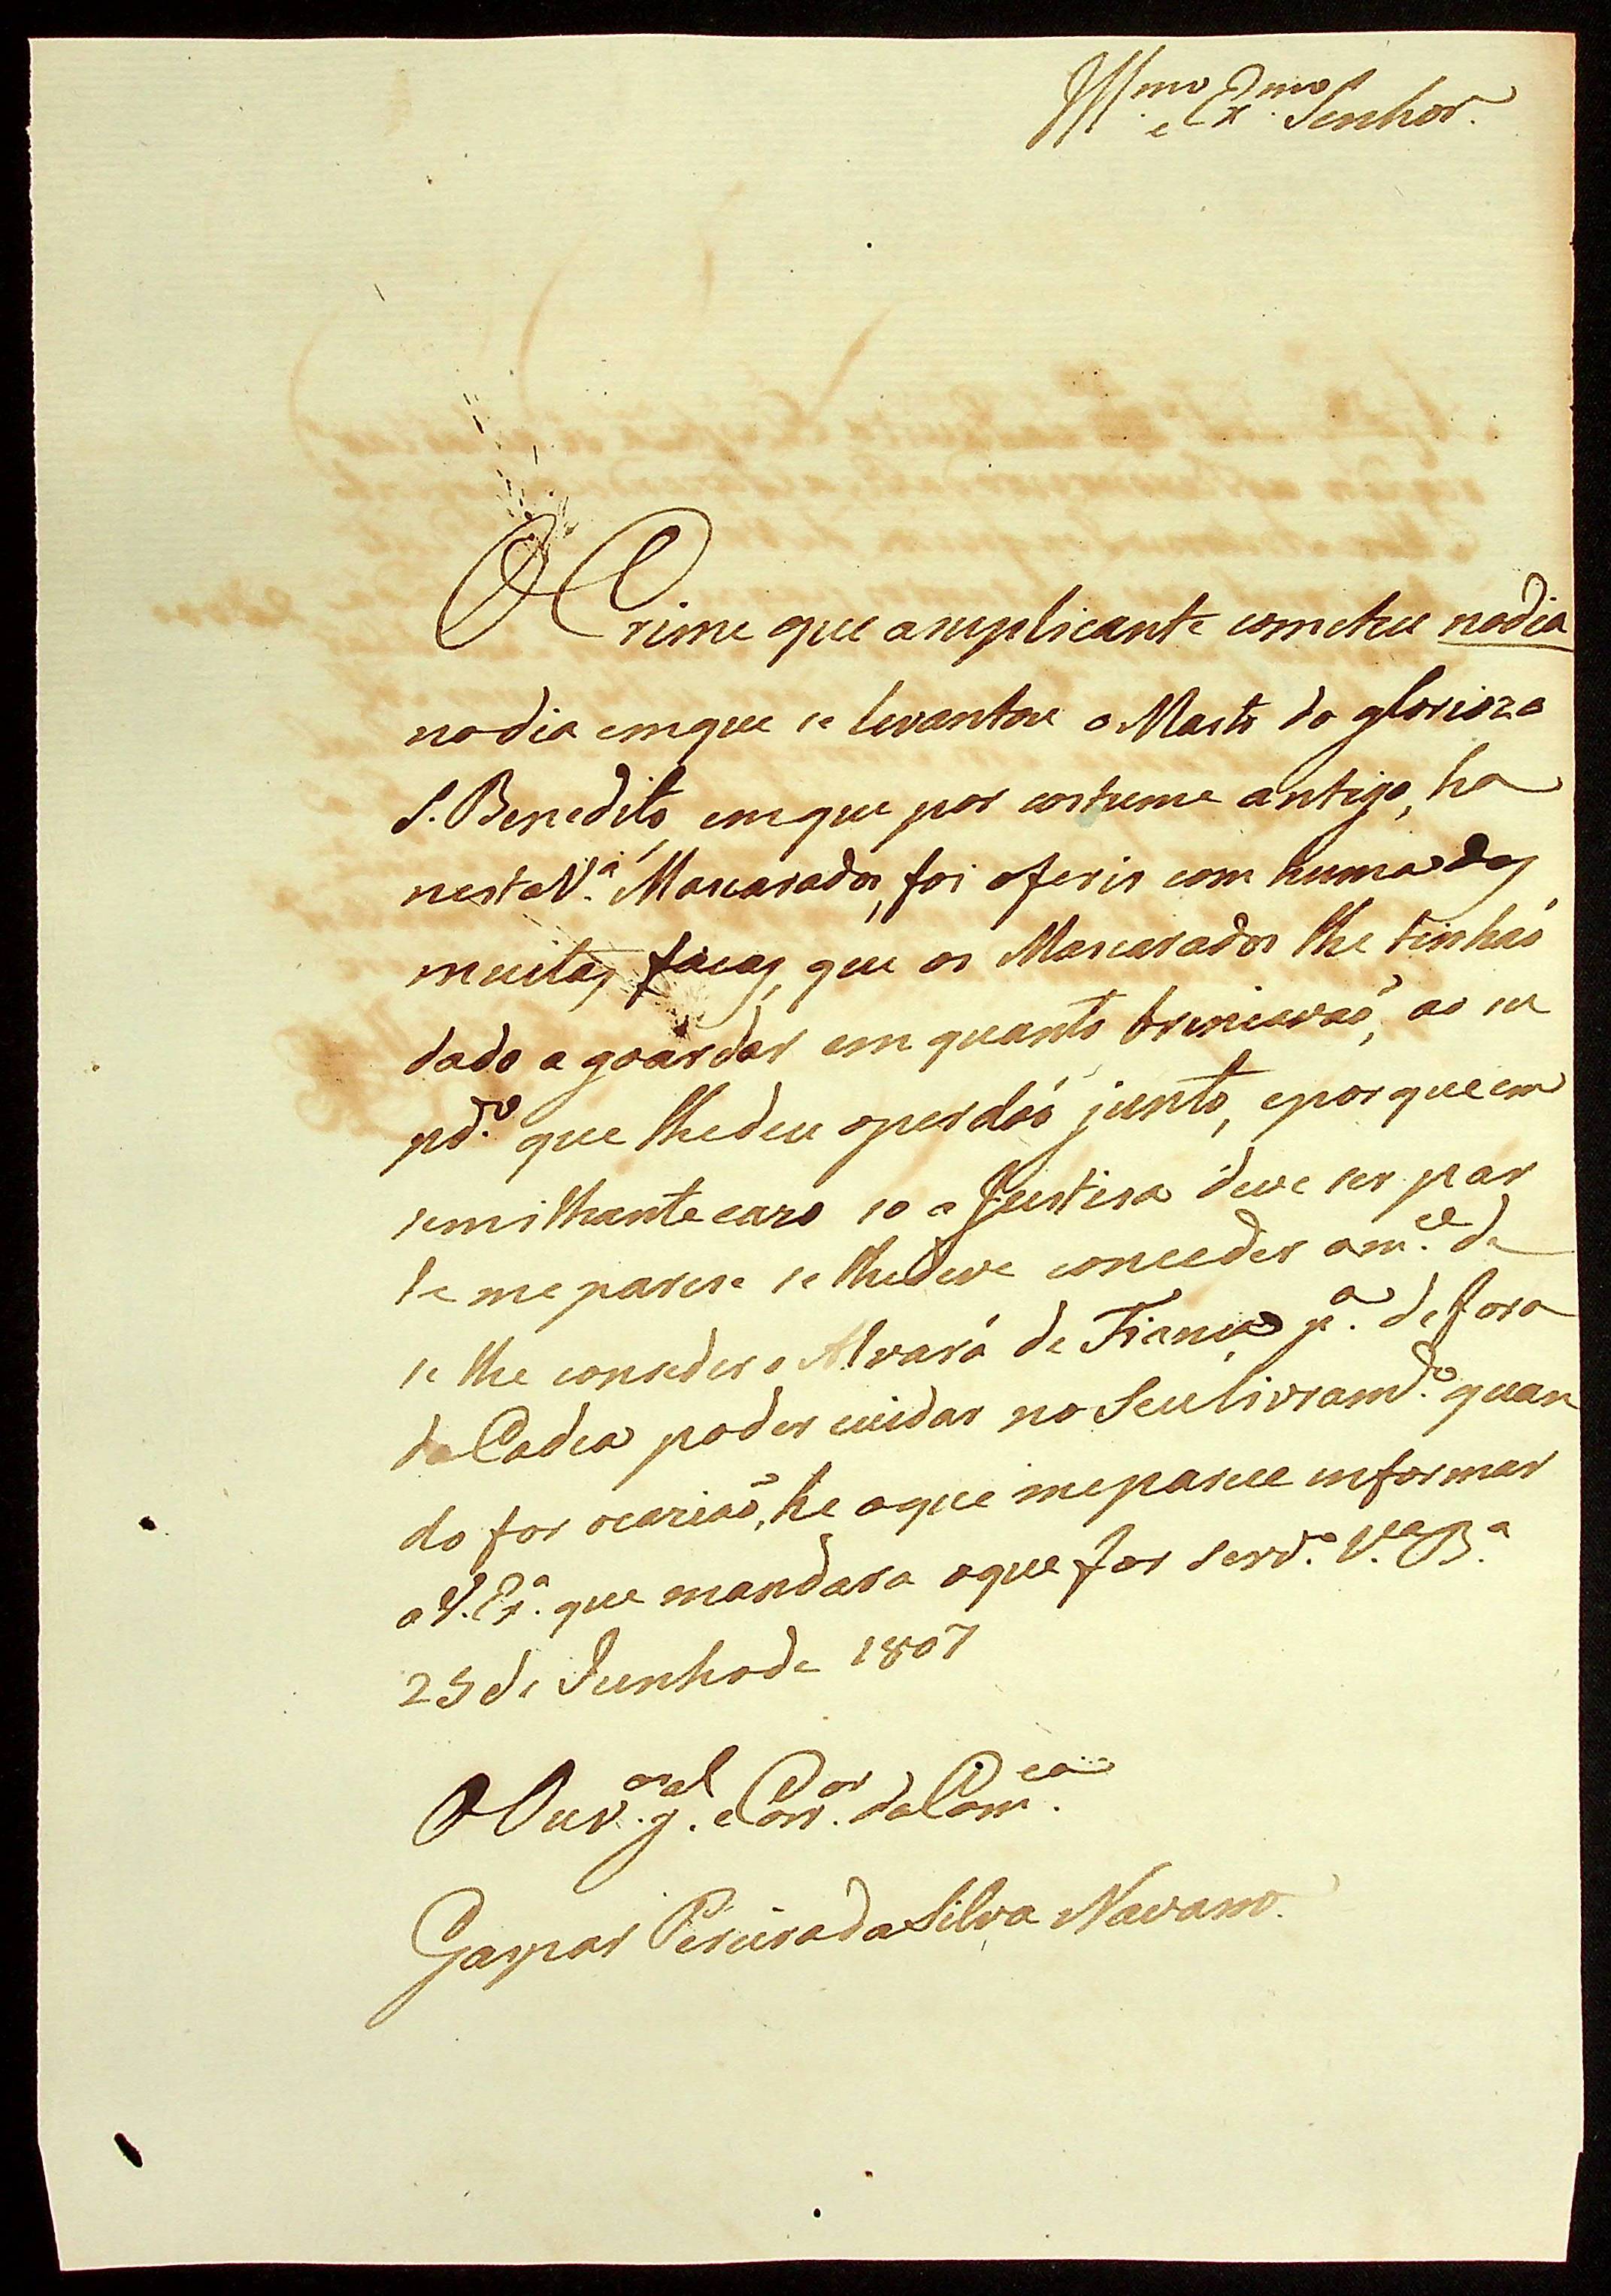 Ill.mo e Ex.mo Senhor.
O Crime que a suplicante cometeu no dia
no dia em que se levantou o Masto do gloriozo
S. Benedito, em que por costume antigo, ha
nesta V.ª Mascarados, foi o ferir com huma das
muitas facas, que os Mascarados lhe tinhaõ
dado a goardar em quanto brincavaõ, ao su
pd.º que lhe deu o perdaõ junto, e porque em
semilhante cazo so a Justisa deve ser par
te me parese se lhe deve conceder a m.ce de
se lhe conseder o Alvará de Fiança p.ª de fora
da Cadea poder cuidar no Seu livram.to quan
do for ocaziaõ, he o que me parece informar
a V. Ex.ª que mandara o que for serv.º V.ª B.ª
25 de Junho de 1807
O Ouv.or g.al e Corr.or da Com.ca
Gaspar Pereira da Silva Navarro.